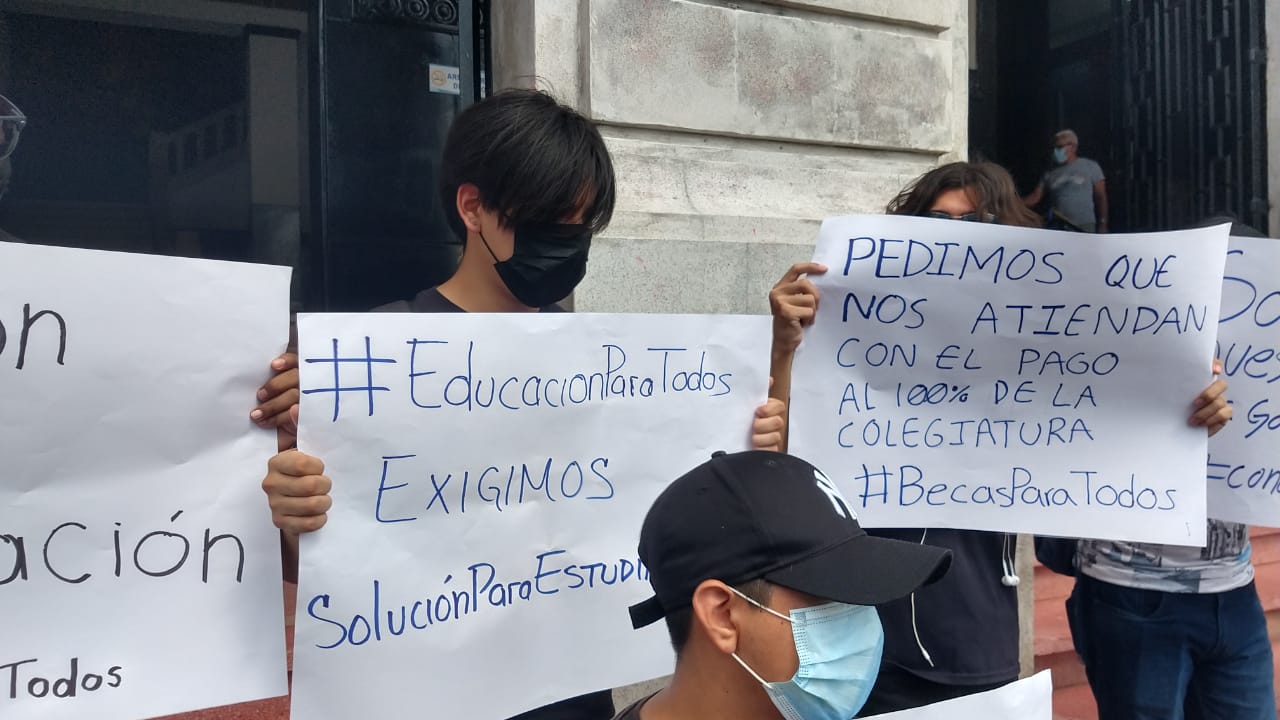 ación
Todos
#EducacionParaTodos
EXIGIMOS
SoluciónParaESTUDI
PEDIMOS QUE
NOS ATIENDAN
CON EL PAGO
AL 100% DE LA
COLEGIATURA
#BecasParaTodos